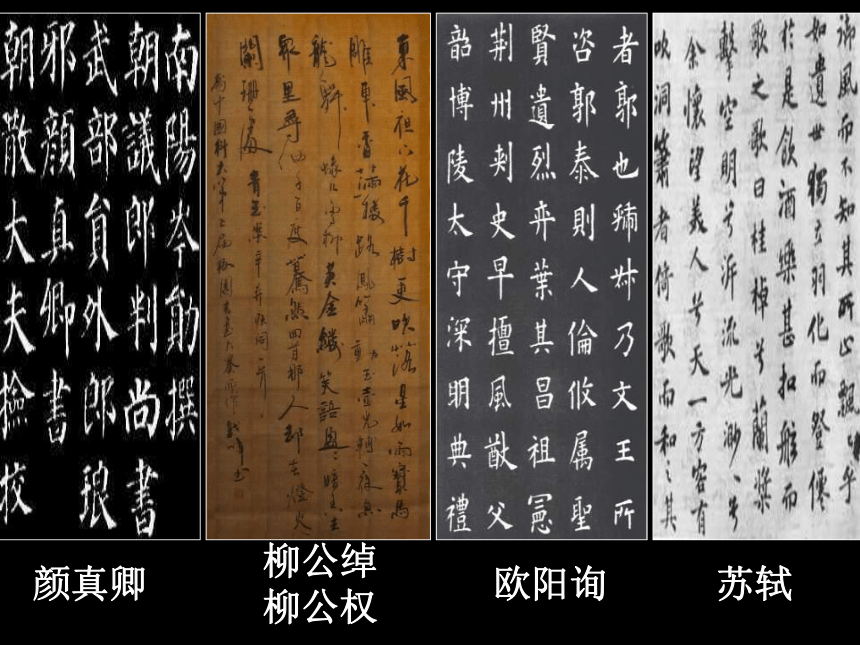 南陽岑勛撰
朝議郎判尚書
武部員外郎琅
邪顏真卿書
朝散大夫撿挍
東風夜放花千樹更吹落星如雨寶馬
雕車香滿路鳳簫聲動玉壺光轉一夜魚
龍舞蛾兒雪柳黃金縷笑語盈盈暗香去
衆里尋他千百度驀然回首那人却在燈火
闌珊處 青玉案辛弃疾詞一首
者郭也虢叔乃文王所
咨郭泰則人倫攸属聖
賢遺烈弈葉其昌祖憲
荆州刺史早擅風猷父
韶博陵太守深明典禮
御風而不知其所止飄飄乎
如遺世獨立羽化而登僊
於是飲酒樂甚扣舷而
歌之歌曰桂棹兮蘭槳
擊空明兮泝流光渺渺兮
余懷望美人兮天一方客有
吹洞簫者倚歌而和之其
颜真卿
柳公绰
柳公权
欧阳询
苏轼